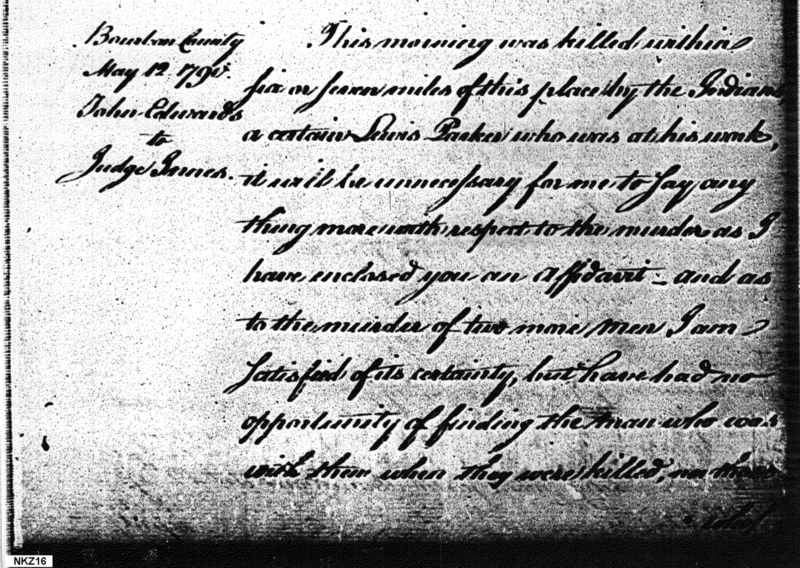 Bourbon County
May 12. 179
John Edwards
to
Judge Innes.
This morning was killed within
six or seven miles of this place by the Indians
a certain Lewis Parker who was at his work,
it will be unnecessary for me to say any
thing more with respect to the murder as I
have enclosed you an Affidavit - and as
to the murder of two more men I am
satisfied of its certainty, but have had no
opportunity of finding the man who was
with them when they were killed, nor
NKZ16